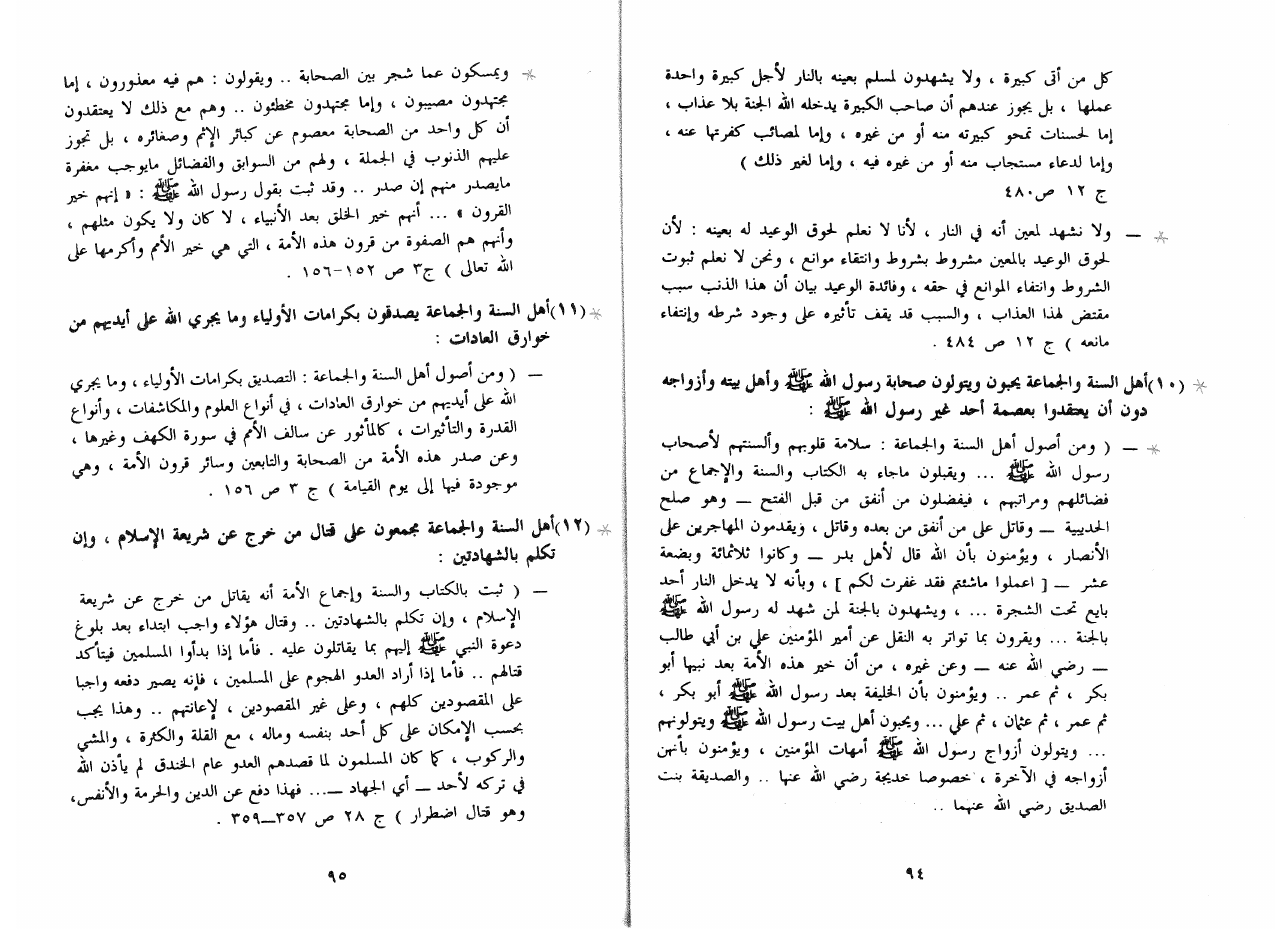 كل من أتى كبيرة ، ولا يشهدون لمسلم بعينه بالنار لأجل كبيرة واحدة
عملها ، بل يجوز عندهم أن صاحب الكبيرة يدخله الله الجنة بلا عذاب ،
إما لحسنات تمحو كبيرته منه أو من غيره ، وإما لمصائب كفرتها عنه ،
وإما لدعاء مستجاب منه أو من غيره فيه ، وإما لغير ذلك )
ج ١٢ ص٤٨٠
* — ولا نشهد لمعين أنه في النار ، لأنا لا نعلم لحوق الوعيد له بعينه : لأن
لحوق الوعيد بالمعين مشروط بشروط وانتقاء موانع ، ونحن لا نعلم ثبوت
الشروط وانتفاء الموانع في حقه ، وفائدة الوعيد بيان أن هذا الذنب سبب
مقتض لهذا العذاب ، والسبب قد يقف تأثيره على وجود شرطه وإنتفاء
مانعه ) ج ١٢ ص ٤٨٤ .
* (١٠)أهل السنة والجماعة يحبون ويتولون صحابة رسول الله ﷺ وأهل بيته وأزواجه
دون أن يعتقدوا بعصمة أحد غير رسول الله ﷺ :
* — ( ومن أصول أهل السنة والجماعة : سلامة قلوبهم وألسنتهم لأصحاب
رسول الله ﷺ ... ويقبلون ماجاء به الكتاب والسنة والإجماع من
فضائلهم ومراتبهم ، فيفضلون من أنفق من قبل الفتح — وهو صلح
الحديبية — وقاتل على من أنفق من بعده وقاتل ، ويقدمون المهاجرين على
الأنصار ، ويؤمنون بأن الله قال لأهل بدر — وكانوا ثلاثمائة وبضعة
عشر — [ اعملوا ماشئتم فقد غفرت لكم ] ، وبأنه لا يدخل النار أحد
بايع تحت الشجرة ... ، ويشهدون بالجنة لمن شهد له رسول الله ﷺ
بالجنة ... ويقرون بما تواتر به النقل عن أمير المؤمنين علي بن أبي طالب
— رضي الله عنه — وعن غيره ، من أن خير هذه الأمة بعد نبيها أبو
بكر ، ثم عمر .. ويؤمنون بأن الخليفة بعد رسول الله ﷺ أبو بكر ،
ثم عمر ، ثم عثمان ، ثم علي ... ويحبون أهل بيت رسول الله ﷺ ويتولونهم
... ويتولون أزواج رسول الله ﷺ أمهات المؤمنين ، ويؤمنون بأنهن
أزواجه في الآخرة ، خصوصا خديجة رضي الله عنها .. والصديقة بنت
الصديق رضي الله عنهما ..
٩٤
* ويمسكون عما شجر بين الصحابة .. ويقولون : هم فيه معذورون ، إما
مجتهدون مصيبون ، وإما مجتهدون مخطئون .. وهم مع ذلك لا يعتقدون
أن كل واحد من الصحابة معصوم عن كبائر الإثم وصغائره ، بل تجوز
عليهم الذنوب في الجملة ، ولهم من السوابق والفضائل مايوجب مغفرة
مايصدر منهم إن صدر .. وقد ثبت بقول رسول الله ﷺ : « إنهم خير
القرون » ... أنهم خير الخلق بعد الأنبياء ، لا كان ولا يكون مثلهم ،
وأنهم هم الصفوة من قرون هذه الأمة ، التي هي خير الأمم وأكرمها على
الله تعالى ) ج٣ ص ١٥٢-١٥٦ .
* (١١)أهل السنة والجماعة يصدقون بكرامات الأولياء وما يجري الله على أيديهم من
خوارق العادات :
— ( ومن أصول أهل السنة والجماعة : التصديق بكرامات الأولياء ، وما يجري
الله على أيديهم من خوارق العادات ، في أنواع العلوم والمكاشفات ، وأنواع
القدرة والتأثيرات ، كالمأثور عن سالف الأمم في سورة الكهف وغيرها ،
وعن صدر هذه الأمة من الصحابة والتابعين وسائر قرون الأمة ، وهي
موجودة فيها إلى يوم القيامة ) ج ٣ ص ١٥٦ .
* (١٢)أهل السنة والجماعة مجمعون على قتال من خرج عن شريعة الإسلام ، وإن
تكلم بالشهادتين :
— ( ثبت بالكتاب والسنة وإجماع الأمة أنه يقاتل من خرج عن شريعة
الإسلام ، وإن تكلم بالشهادتين .. وقتال هؤلاء واجب ابتداء بعد بلوغ
دعوة النبي ﷺ إليهم بما يقاتلون عليه . فأما إذا بدأوا المسلمين فيتأكد
قتالهم .. فأما إذا أراد العدو الهجوم على المسلمين ، فإنه يصير دفعه واجبا
على المقصودين كلهم ، وعلى غير المقصودين ، لإعانتهم .. وهذا يجب
بحسب الإمكان على كل أحد بنفسه وماله ، مع القلة والكثرة ، والمشي
والركوب ، كما كان المسلمون لما قصدهم العدو عام الخندق لم يأذن الله
في تركه لأحد — أي الجهاد —... فهذا دفع عن الدين والحرمة والأنفس،
وهو قتال اضطرار ) ج ٢٨ ص ٣٥٧—٣٥٩ .
٩٥